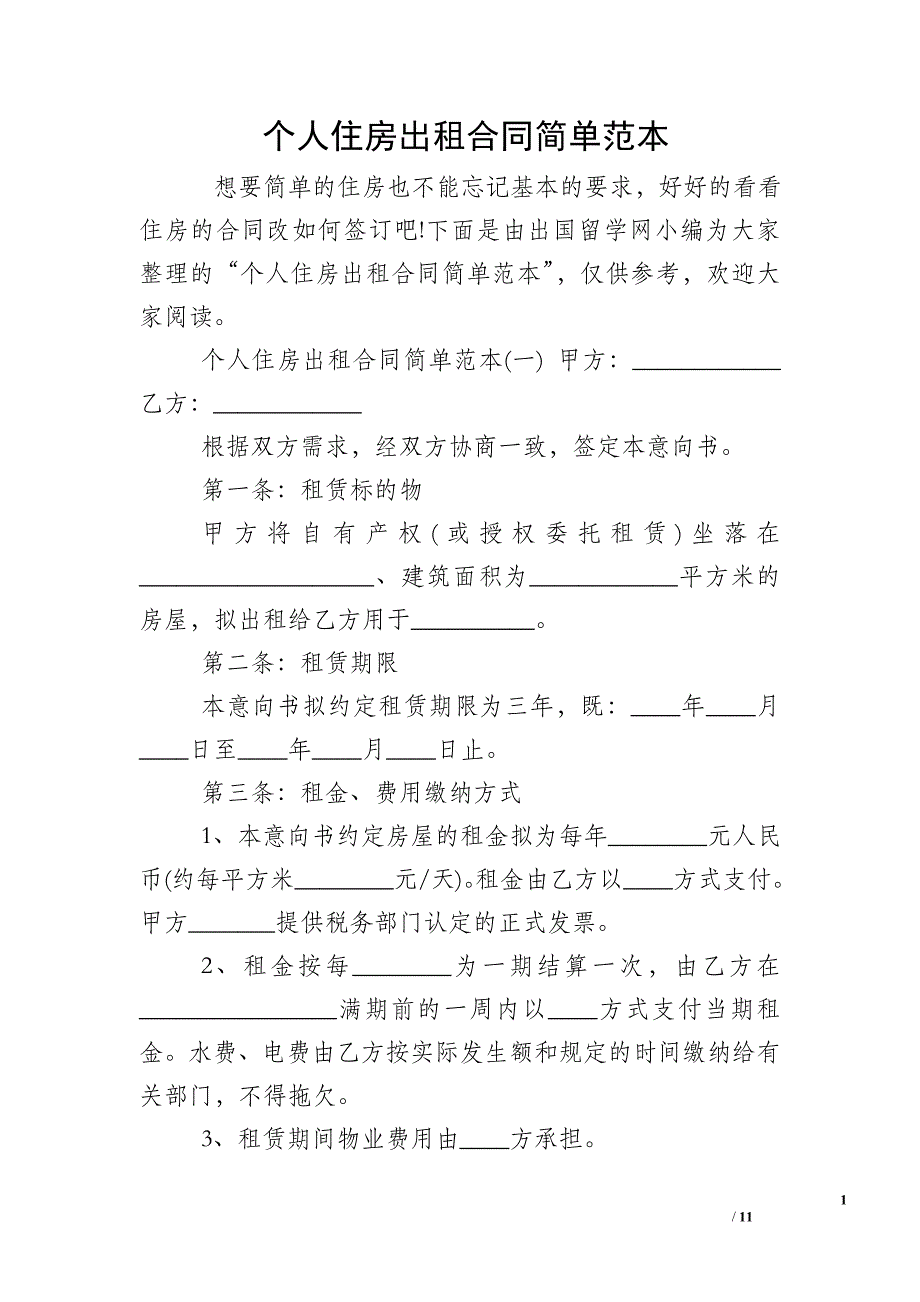 个人住房出租合同简单范本
想要简单的住房也不能忘记基本的要求，好好的看看
住房的合同改如何签订吧!下面是由出国留学网小编为大家
整理的“个人住房出租合同简单范本”，仅供参考，欢迎大
家阅读。
个人住房出租合同简单范本(一) 甲方：____________
乙方：____________
根据双方需求，经双方协商一致，签定本意向书。
第一条：租赁标的物
甲方将自有产权(或授权委托租赁)坐落在
___________________、建筑面积为____________平方米的
房屋，拟出租给乙方用于__________。
第二条：租赁期限
本意向书拟约定租赁期限为三年，既：____年____月
____日至____年____月____日止。
第三条：租金、费用缴纳方式
1、本意向书约定房屋的租金拟为每年________元人民
币(约每平方米________元/天)。租金由乙方以____方式支付。
甲方_______提供税务部门认定的正式发票。
2、租金按每________为一期结算一次，由乙方在
________________满期前的一周内以____方式支付当期租
金。水费、电费由乙方按实际发生额和规定的时间缴纳给有
关部门，不得拖欠。
3、租赁期间物业费用由____方承担。
1
/ 11